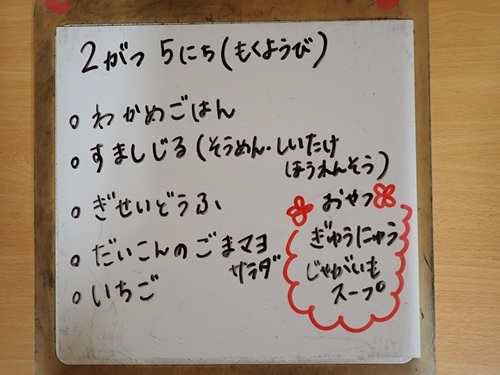 2がつ 5にち(もくようび)
○ わかめごはん
○ すましじる(そうめん・しいたけ
ほうれんそう)
○ ぎせいどうふ
○ だいこんのごまマヨ
サラダ
○ いちご
おやつ
ぎゅうにゅう
じゃがいも
スープ